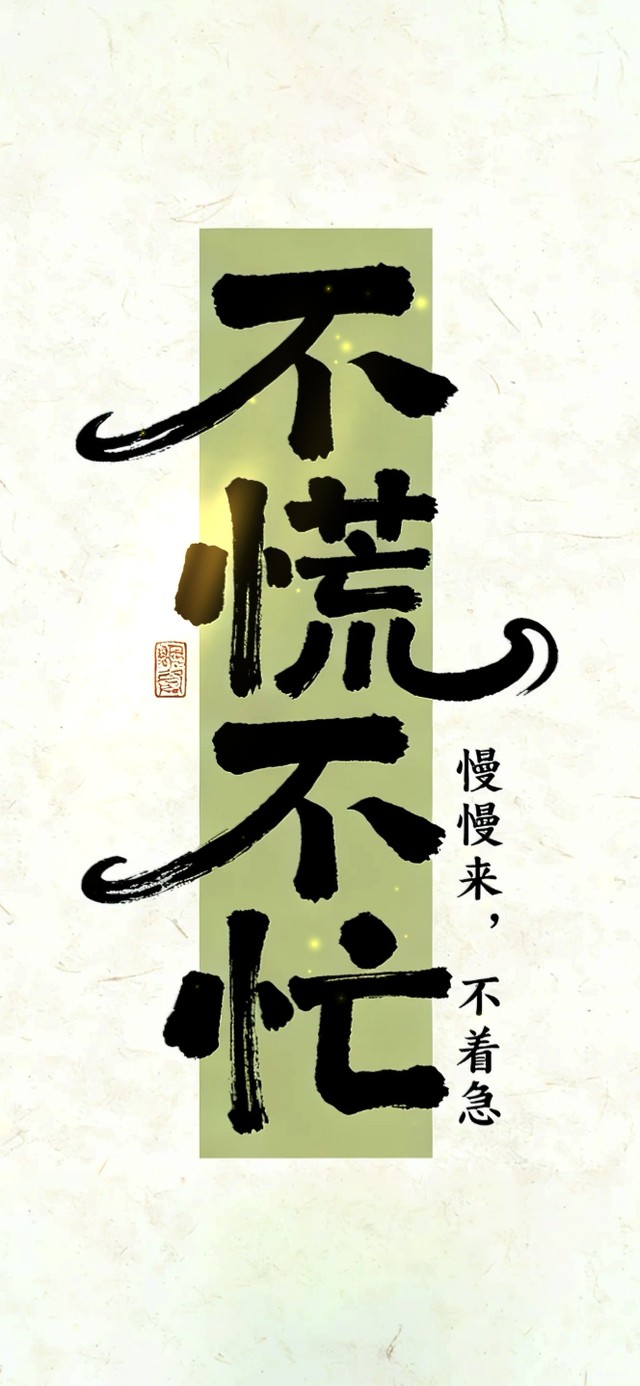 不慌不忙
慢慢来，不着急